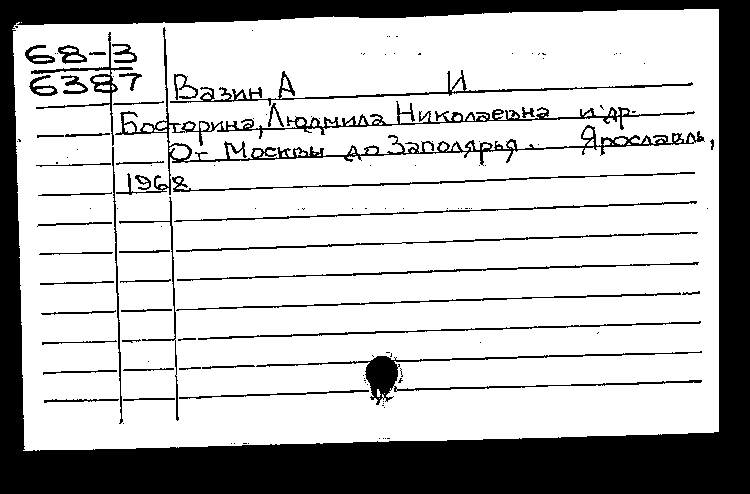 68-3
6387
Вазин, А И
Босторина, Людмила Николаевна и др.
От Москвы до Заполярья. Ярославль,
1968